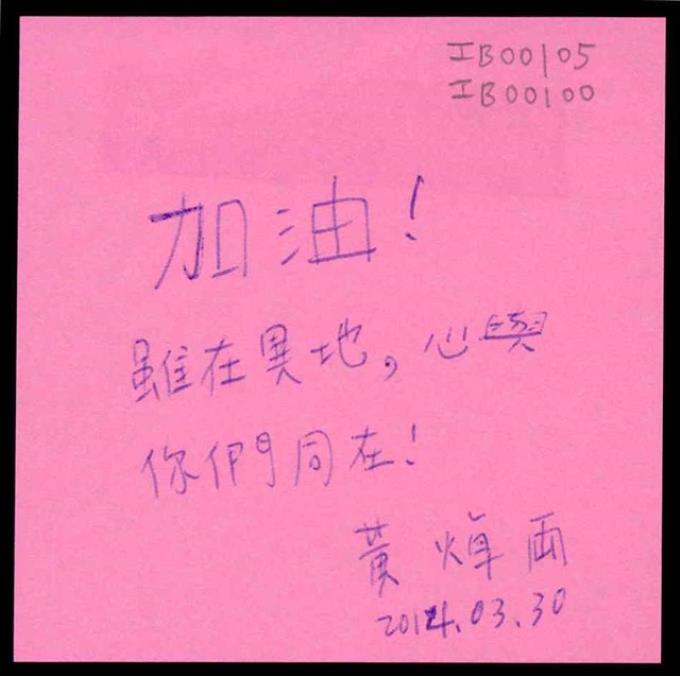 IB00105
IB00100
加油!
雖在異地,心與
你們同在!
黃焯雨
2014.03.30